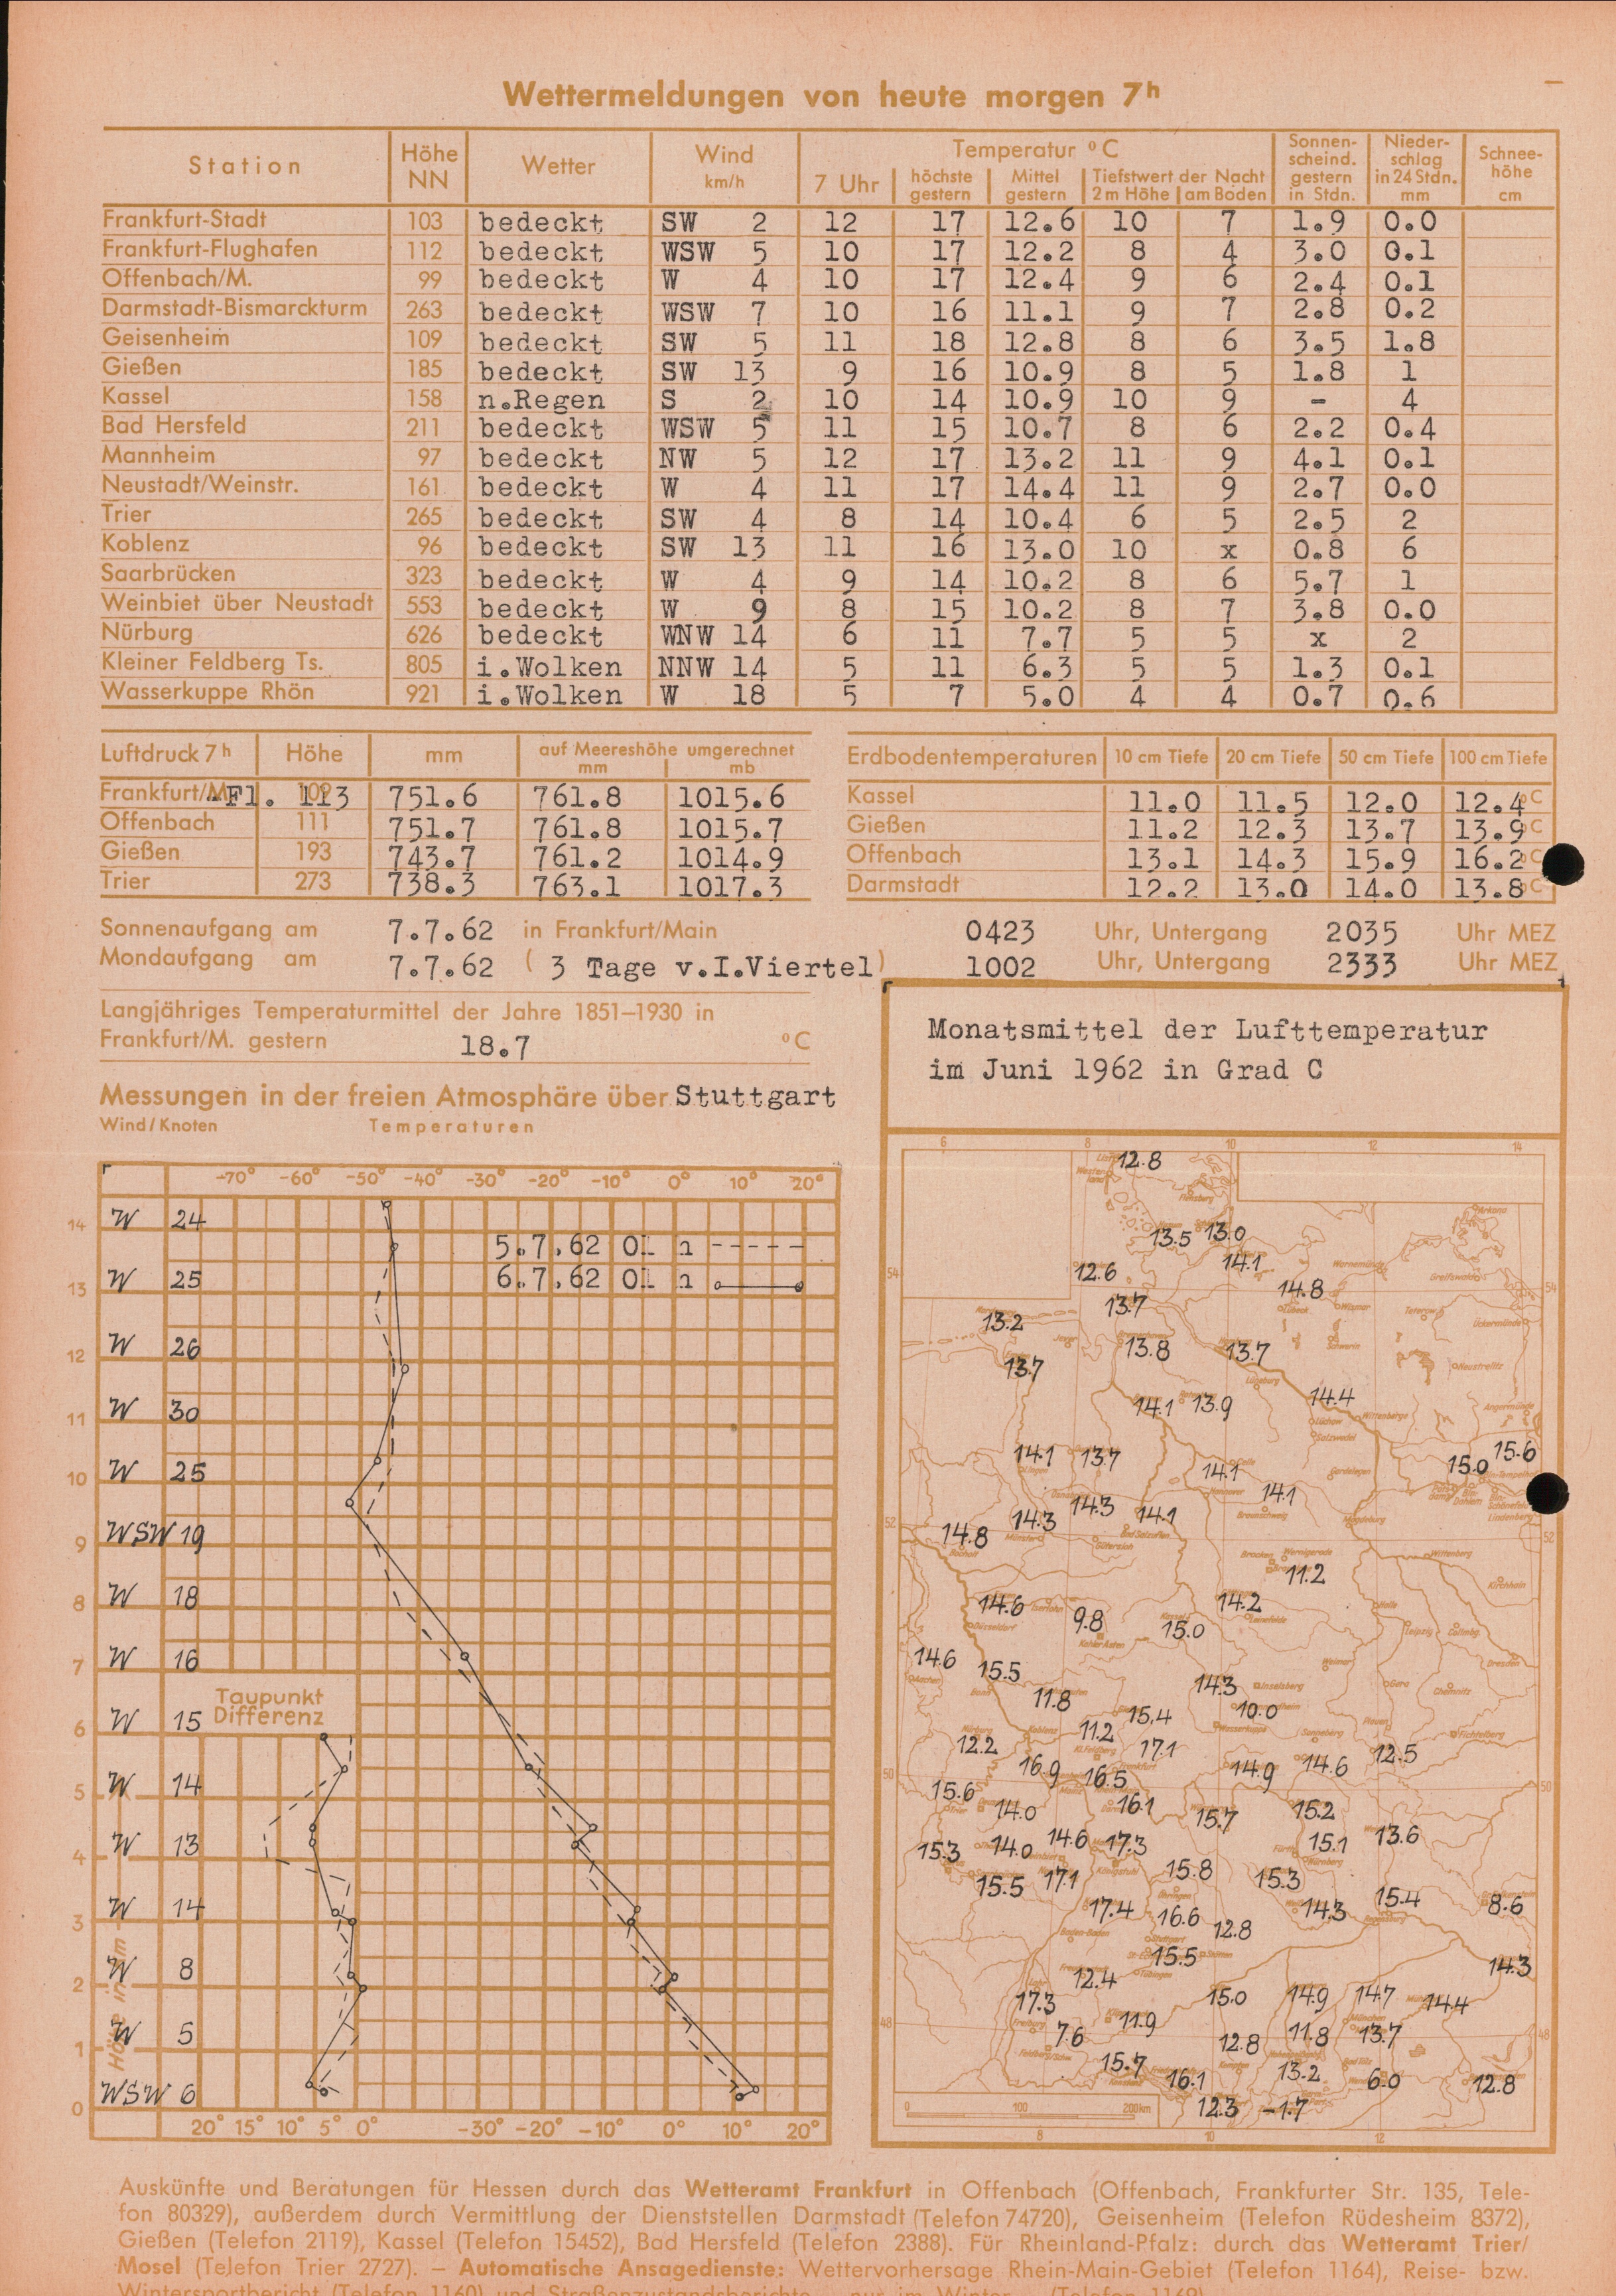 Wettermeldungen von heute morgen 7h
Station Höhe NN Wetter Wind km/h Temperatur °C Sonnenscheind. gestern in Stdn. Niederschlag in 24 Stdn. mm Schneehöhe cm
7 Uhr höchste gestern Mittel gestern Tiefstwert der Nacht 2 m Höhe am Boden
Frankfurt-Stadt 103 bedeckt SW 2 12 17 12.6 10 7 1.9 0.0
Frankfurt-Flughafen 112 bedeckt WSW 5 10 17 12.2 8 4 3.0 0.1
Offenbach/M. 99 bedeckt W 4 10 17 12.4 9 6 2.4 0.1
Darmstadt-Bismarckturm 263 bedeckt WSW 7 10 16 11.1 9 7 2.8 0.2
Geisenheim 109 bedeckt SW 5 11 18 12.8 8 6 3.5 1.8
Gießen 185 bedeckt SW 13 9 16 10.9 8 5 1.8 1
Kassel 158 n.Regen S 2 10 14 10.9 10 9 - 4
Bad Hersfeld 211 bedeckt WSW 5 11 15 10.7 8 6 2.2 0.4
Mannheim 97 bedeckt NW 5 12 17 13.2 11 9 4.1 0.1
Neustadt/Weinstr. 161 bedeckt W 4 11 17 14.4 11 9 2.7 0.0
Trier 265 bedeckt SW 4 8 14 10.4 6 5 2.5 2
Koblenz 96 bedeckt SW 13 11 16 13.0 10 x 0.8 6
Saarbrücken 323 bedeckt W 4 9 14 10.2 8 6 5.7 1
Weinbiet über Neustadt 553 bedeckt W 9 8 15 10.2 8 7 3.8 0.0
Nürburg 626 bedeckt WNW 14 6 11 7.7 5 5 x 2
Kleiner Feldberg Ts. 805 i.Wolken NNW 14 5 11 6.3 5 5 1.3 0.1
Wasserkuppe Rhön 921 i.Wolken W 18 5 7 5.0 4 4 0.7 0.6
Luftdruck 7h Höhe mm auf Meereshöhe umgerechnet mm mb
Frankfurt/M.-Fl. 113 751.6 761.8 1015.6
Offenbach 111 751.7 761.8 1015.7
Gießen 193 743.7 761.2 1014.9
Trier 273 738.3 763.1 1017.3
Erdbodentemperaturen 10 cm Tiefe 20 cm Tiefe 50 cm Tiefe 100 cm Tiefe
Kassel 11.0 11.5 12.0 12.4 °C
Gießen 11.2 12.3 13.7 13.9 °C
Offenbach 13.1 14.3 15.9 16.2 °C
Darmstadt 12.2 13.0 14.0 13.8 °C
Sonnenaufgang am 7.7.62 in Frankfurt/Main 0423 Uhr, Untergang 2035 Uhr MEZ
Mondaufgang am 7.7.62 ( 3 Tage v.I.Viertel) 1002 Uhr, Untergang 2333 Uhr MEZ
Langjähriges Temperaturmittel der Jahre 1851–1930 in
Frankfurt/M. gestern 18.7 °C
Messungen in der freien Atmosphäre über Stuttgart
Wind/Knoten Temperaturen
-70° -60° -50° -40° -30° -20° -10° 0° 10° 20°
14 W 24
5.7.62 01 h
13 W 25
6.7.62 01 h
12 W 26
11 W 30
10 W 25
9 WSW 19
8 W 18
7 W 16
Taupunkt
Differenz
6 W 15
5 W 14
4 W 13
3 W 14
2 W 8
1 W 5
0 WSW 6
Höhe in km
20° 15° 10° 5° 0° -30° -20° -10° 0° 10° 20°
Monatsmittel der Lufttemperatur
im Juni 1962 in Grad C
6 8 10 12 14
12.8
13.5 13.0
14.1
54 12.6 14.8 54
13.7
13.2
13.8 13.7
13.7
14.4
14.1 13.9
14.1 13.7 14.1 15.0 15.6
14.1
14.3 14.3 14.1
52 14.8 52
11.2
14.6 9.8 14.2
15.0
14.6 15.5
11.8 14.3
15.4 10.0
12.2 11.2 17.1
16.9 16.5 14.9 14.6 12.5
50 15.6 50
14.0 16.1 15.7 15.2
15.3 14.0 14.6 17.3 15.1 13.6
15.5 17.1 15.8 15.3
17.4 16.6 12.8 14.3 15.4 8.6
15.5
12.4 14.3
17.3 15.0 14.9 14.7 14.4
48 7.6 11.9 12.8 11.8 13.7 48
15.7 16.1 13.2 6.0 12.8
12.3 -1.7
0 100 200 km
8 10 12
Auskünfte und Beratungen für Hessen durch das Wetteramt Frankfurt in Offenbach (Offenbach, Frankfurter Str. 135, Tele-
fon 80329), außerdem durch Vermittlung der Dienststellen Darmstadt (Telefon 74720), Geisenheim (Telefon Rüdesheim 8372),
Gießen (Telefon 2119), Kassel (Telefon 15452), Bad Hersfeld (Telefon 2388). Für Rheinland-Pfalz: durch das Wetteramt Trier/
Mosel (Telefon Trier 2727). – Automatische Ansagedienste: Wettervorhersage Rhein-Main-Gebiet (Telefon 1164), Reise- bzw.
Wintersportbericht (Telefon 1160) und Straßenzustandsberichte – nur im Winter – (Telefon 1169)